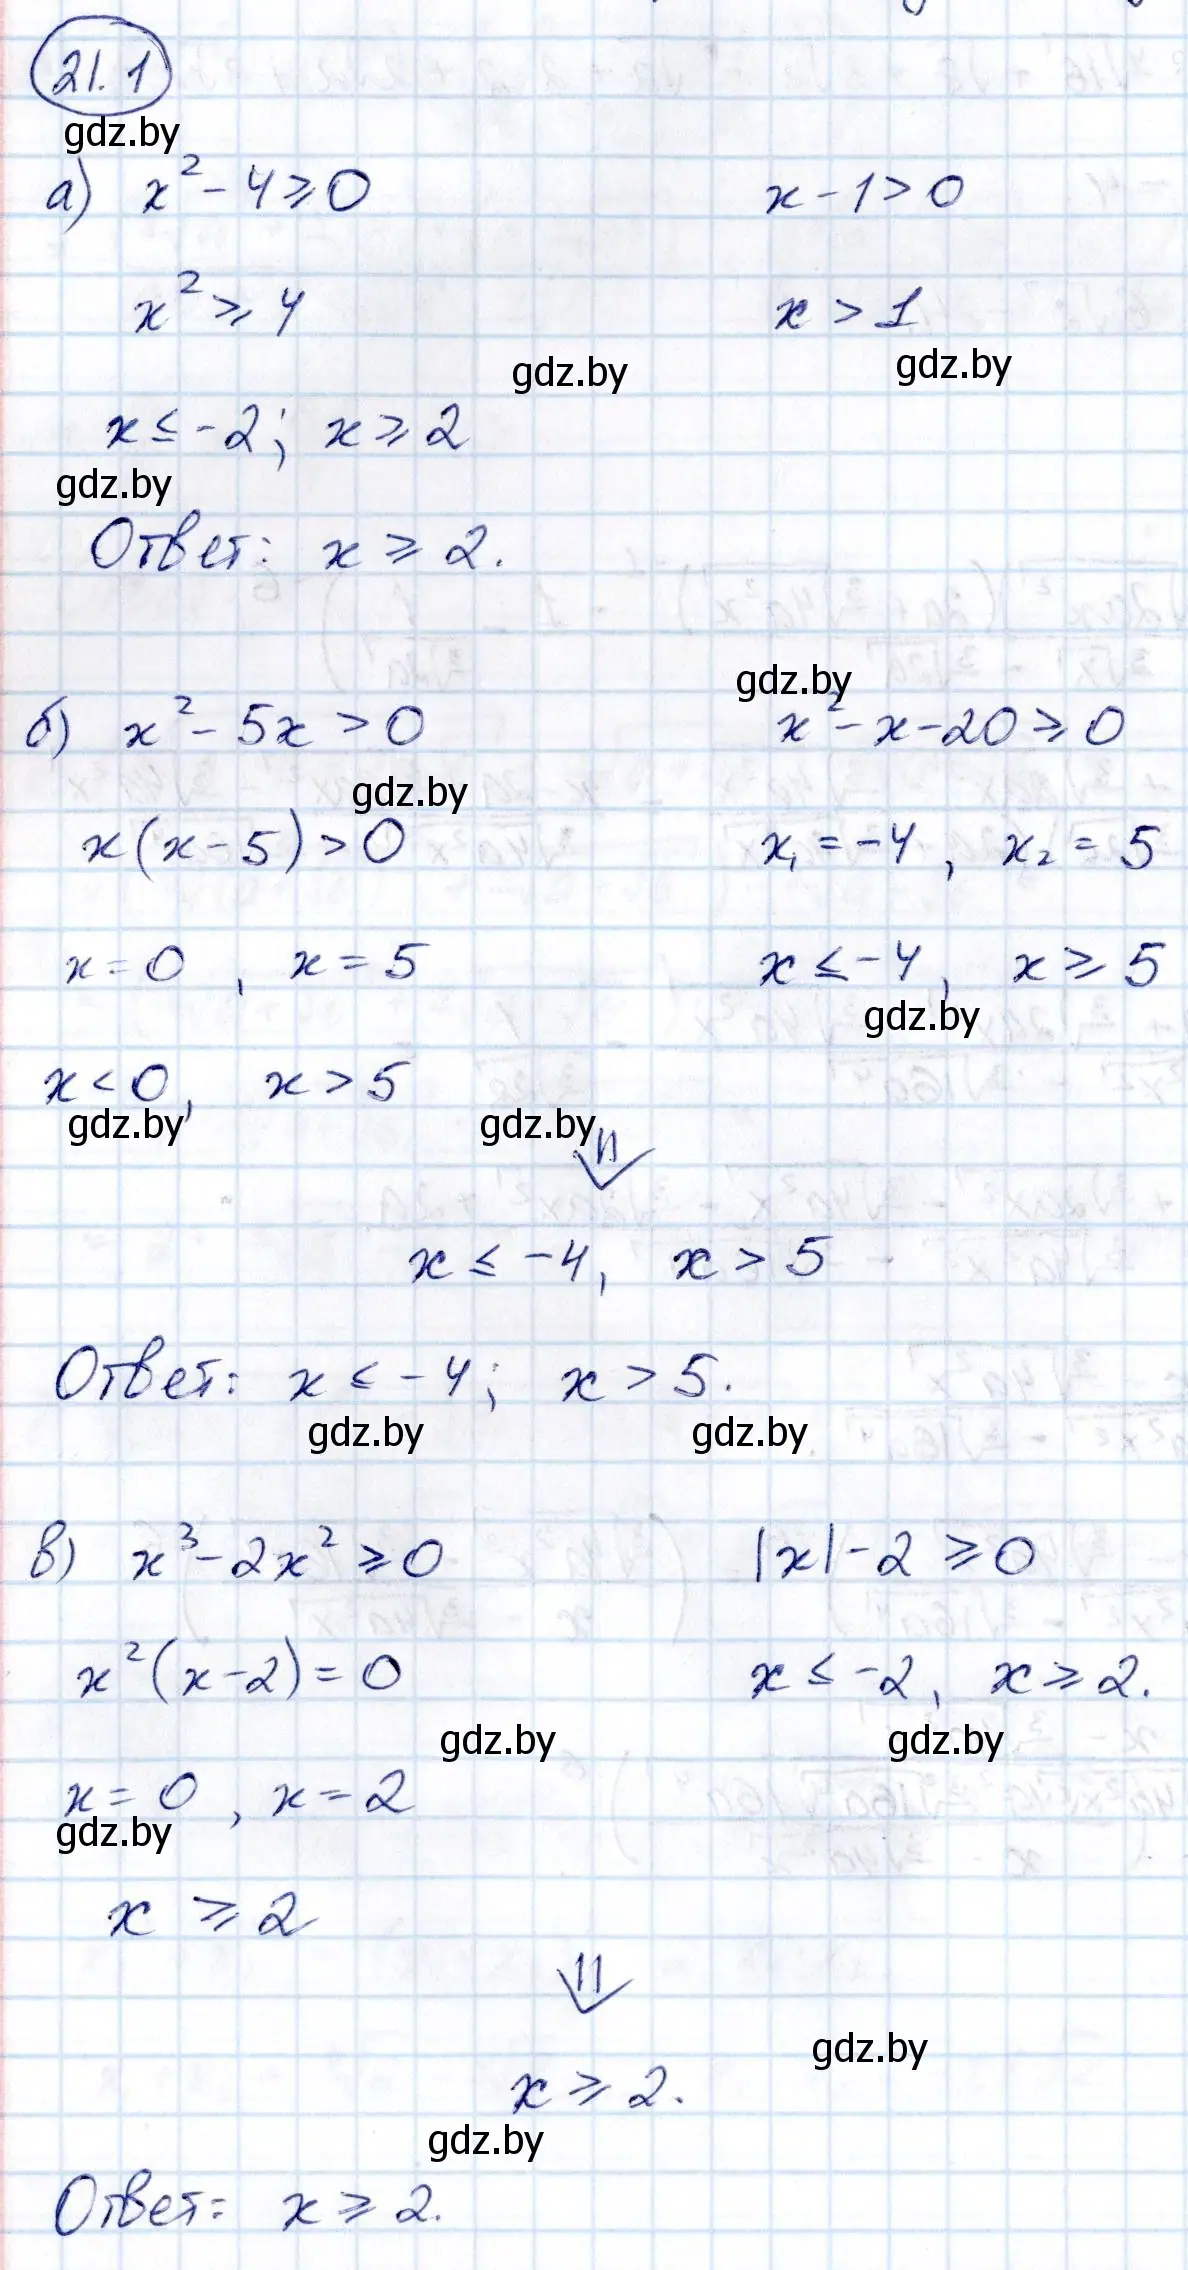 21.1
gdz.by
а) x² - 4 ≥ 0 x - 1 > 0
x² ≥ 4 x > 1
gdz.by gdz.by
x ≤ -2; x ≥ 2
gdz.by
Ответ: x ≥ 2.
gdz.by
б) x² - 5x > 0 x² - x - 20 ≥ 0
gdz.by
x(x - 5) > 0 x₁ = -4, x₂ = 5
x = 0, x = 5 x ≤ -4, x ≥ 5
gdz.by
x < 0, x > 5
gdz.by gdz.by
x ≤ -4, x > 5
Ответ: x ≤ -4; x > 5.
gdz.by gdz.by
в) x³ - 2x² ≥ 0 |x| - 2 ≥ 0
x²(x - 2) = 0 x ≤ -2, x ≥ 2.
gdz.by gdz.by
x = 0, x = 2
gdz.by
x ≥ 2
⇓
gdz.by
x ≥ 2.
gdz.by
Ответ: x ≥ 2.